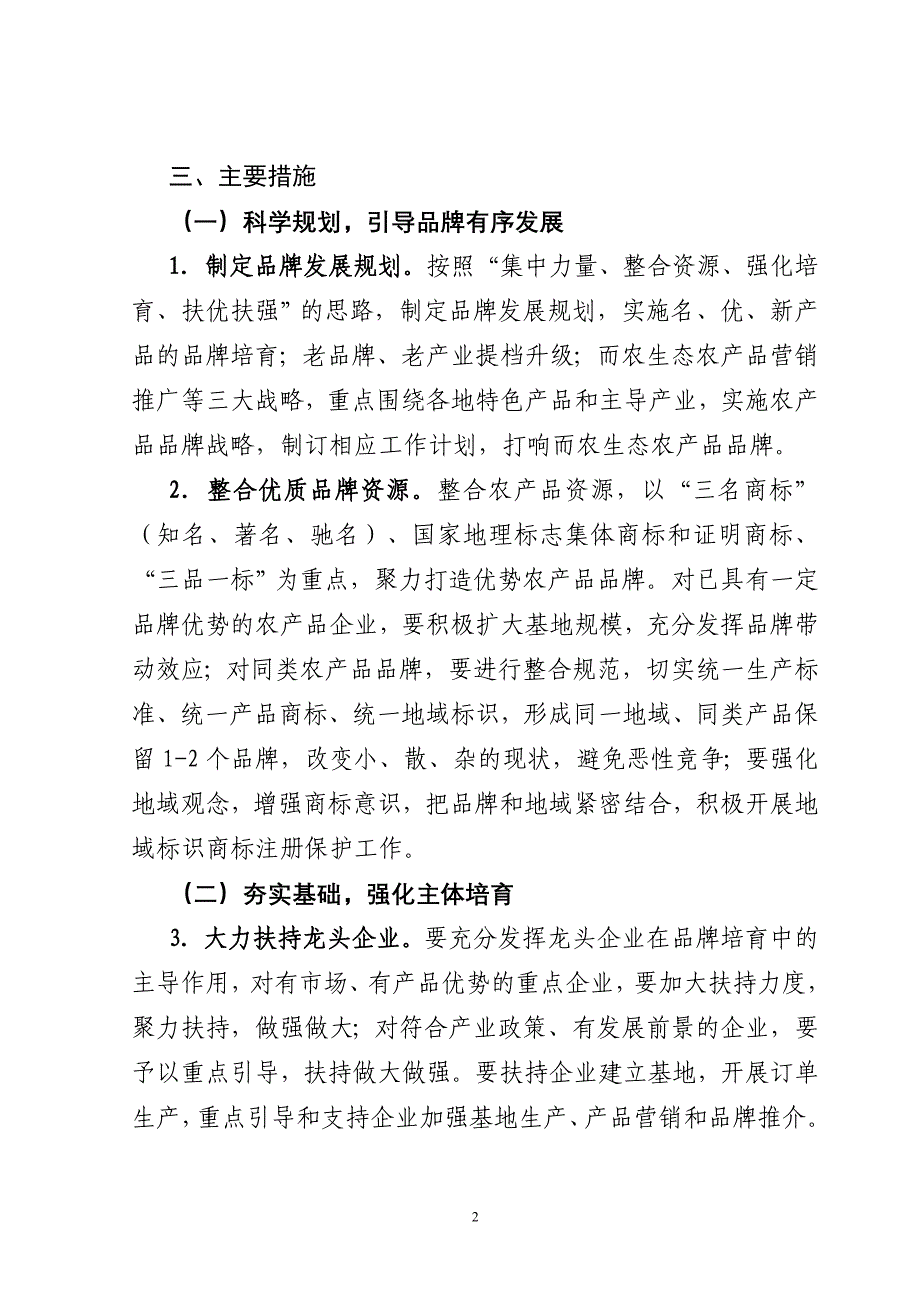 三、主要措施
（一）科学规划，引导品牌有序发展
1. 制定品牌发展规划。按照“集中力量、整合资源、强化培
育、扶优扶强”的思路，制定品牌发展规划，实施名、优、新产
品的品牌培育；老品牌、老产业提档升级；而农生态农产品营销
推广等三大战略，重点围绕各地特色产品和主导产业，实施农产
品品牌战略，制订相应工作计划，打响而农生态农产品品牌。
2. 整合优质品牌资源。整合农产品资源，以“三名商标”
（知名、著名、驰名）、国家地理标志集体商标和证明商标、
“三品一标”为重点，聚力打造优势农产品品牌。对已具有一定
品牌优势的农产品企业，要积极扩大基地规模，充分发挥品牌带
动效应；对同类农产品品牌，要进行整合规范，切实统一生产标
准、统一产品商标、统一地域标识，形成同一地域、同类产品保
留1-2个品牌，改变小、散、杂的现状，避免恶性竞争；要强化
地域观念，增强商标意识，把品牌和地域紧密结合，积极开展地
域标识商标注册保护工作。
（二）夯实基础，强化主体培育
3. 大力扶持龙头企业。要充分发挥龙头企业在品牌培育中的
主导作用，对有市场、有产品优势的重点企业，要加大扶持力度，
聚力扶持，做强做大；对符合产业政策、有发展前景的企业，要
予以重点引导，扶持做大做强。要扶持企业建立基地，开展订单
生产，重点引导和支持企业加强基地生产、产品营销和品牌推介。
2